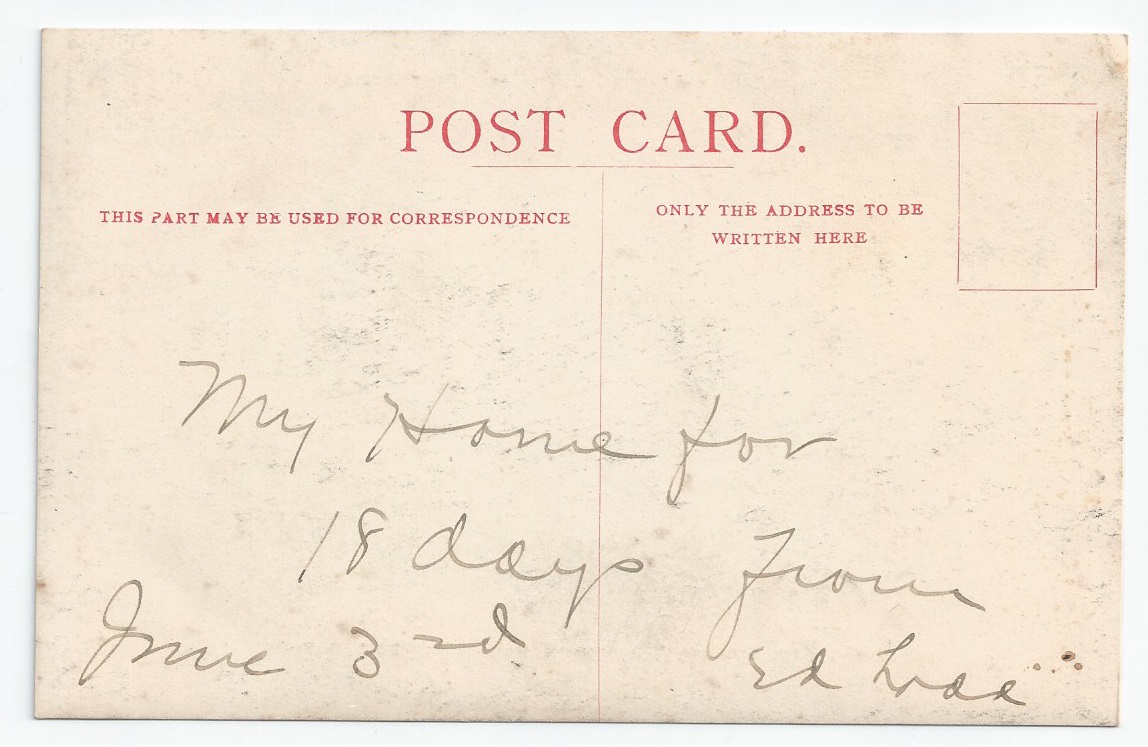 POST CARD.
THIS PART MAY BE USED FOR CORRESPONDENCE
ONLY THE ADDRESS TO BE
WRITTEN HERE
My Home for
18 days from
June 3rd
Ed Ladd